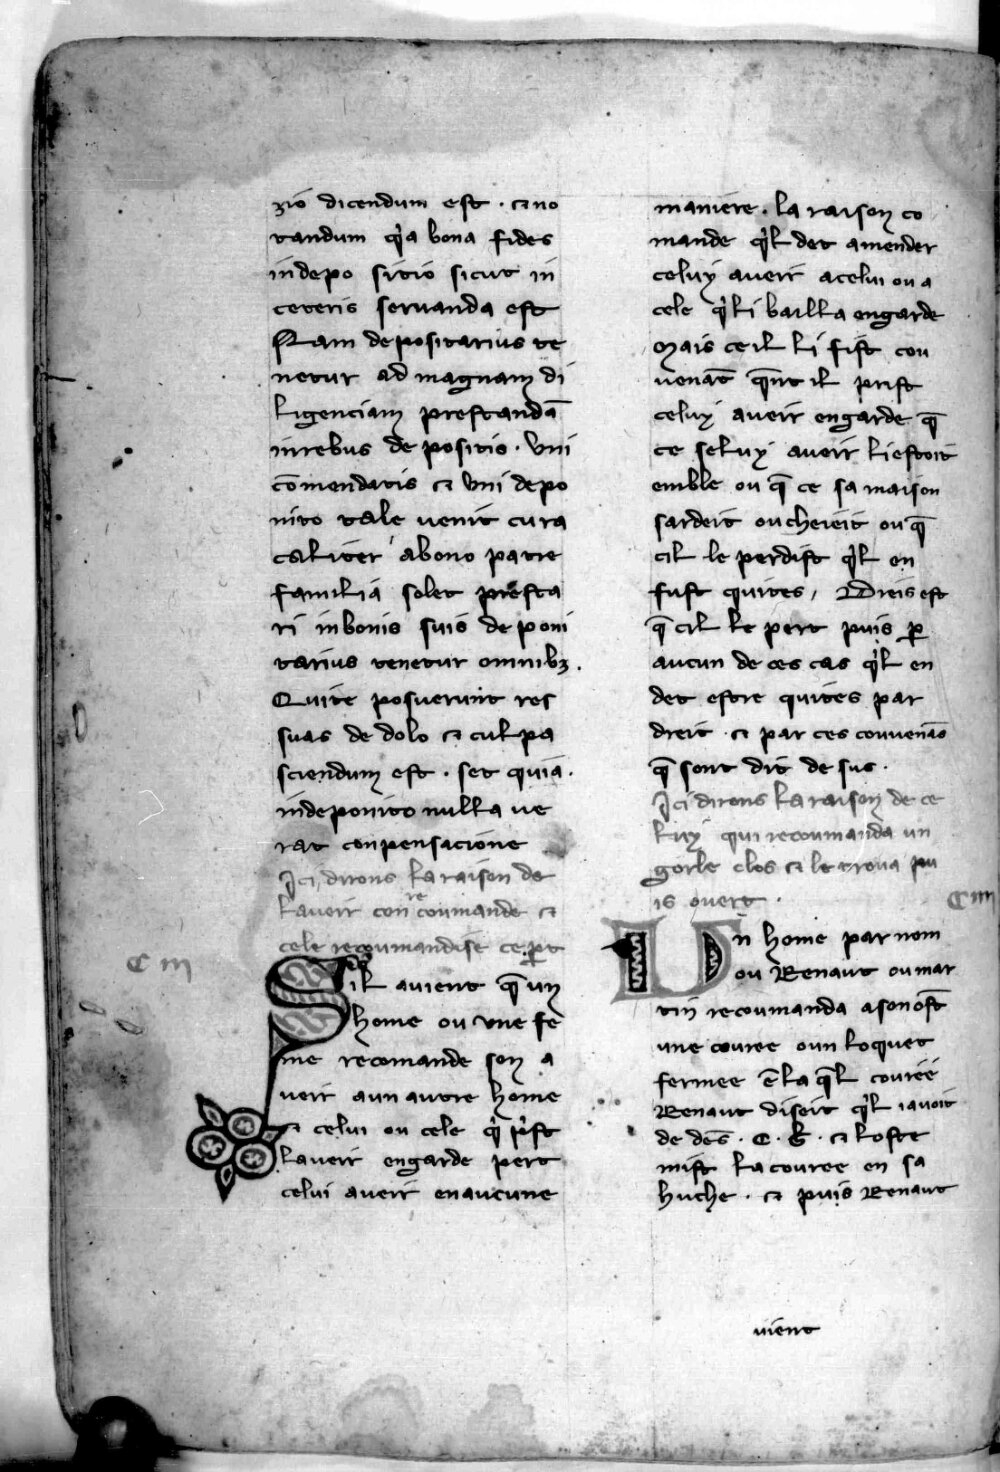 zio dicendum est · ⁊ no
tandum qͥa bona fides
indepo sitio sicut in
ceteris seruanda est
Nam depositarius te
netur ad magnam di
ligenciam prestandā
inrebus de positis · vni
cōmendatis ⁊ vni depo
nito tale uenit cura
caliter abono patre
familia solet presta
ri inbonis suis deponi
tarius tenetur omnibꝫ .
Quite posuerunt res
suas de dolo ⁊ culpa
sciendum est · set quia ·
indeponito nulla ue
rat conpensacione
Ici dirons la raison de
laueir con re coumande ⁊
cele recoumandise ce ꝑt
Sil auient q̄ un
home ou vne fe
me recomande son a
ueir aun autre home
⁊ celui ou cele qͥ pͥst
laueir engarde pert
celui aueir enaucune
C III
maniere . la raison co
mande qͥl det amender
celuy aueir acelui ou a
cele qͥ li bailla engarde
Mais ce il li fist cou
uenāt q̄nt il prist
celuy aueir engarde q̄
ce seluy aueir li estoit
emble ou q̄ ce sa maison
sardeit ou cheieit ou q̄
cil le perdist qͥl en
fust quites / Dreis est
q̄ cil le pert puis ꝑ
aucun de ces cas qͥl en
det estre quites par
dreit · ⁊ par ces couuenās
q̄ sont dit de sus ·
Ici dirons la raison de ce
luy qui recoumanda un
gorle clos ⁊ le trova pu
is overt ·
C IIII
Un home par nom
ou Renaut ou mar
tin recoumanda a son ost̄
une couree o un loquet
fermee ē la q̄l couree
Renaut diseit qͥl i auoit
de des̄ · C · ⁊ loste
mist la couree en sa
huche · ⁊ puis Renaut
uient